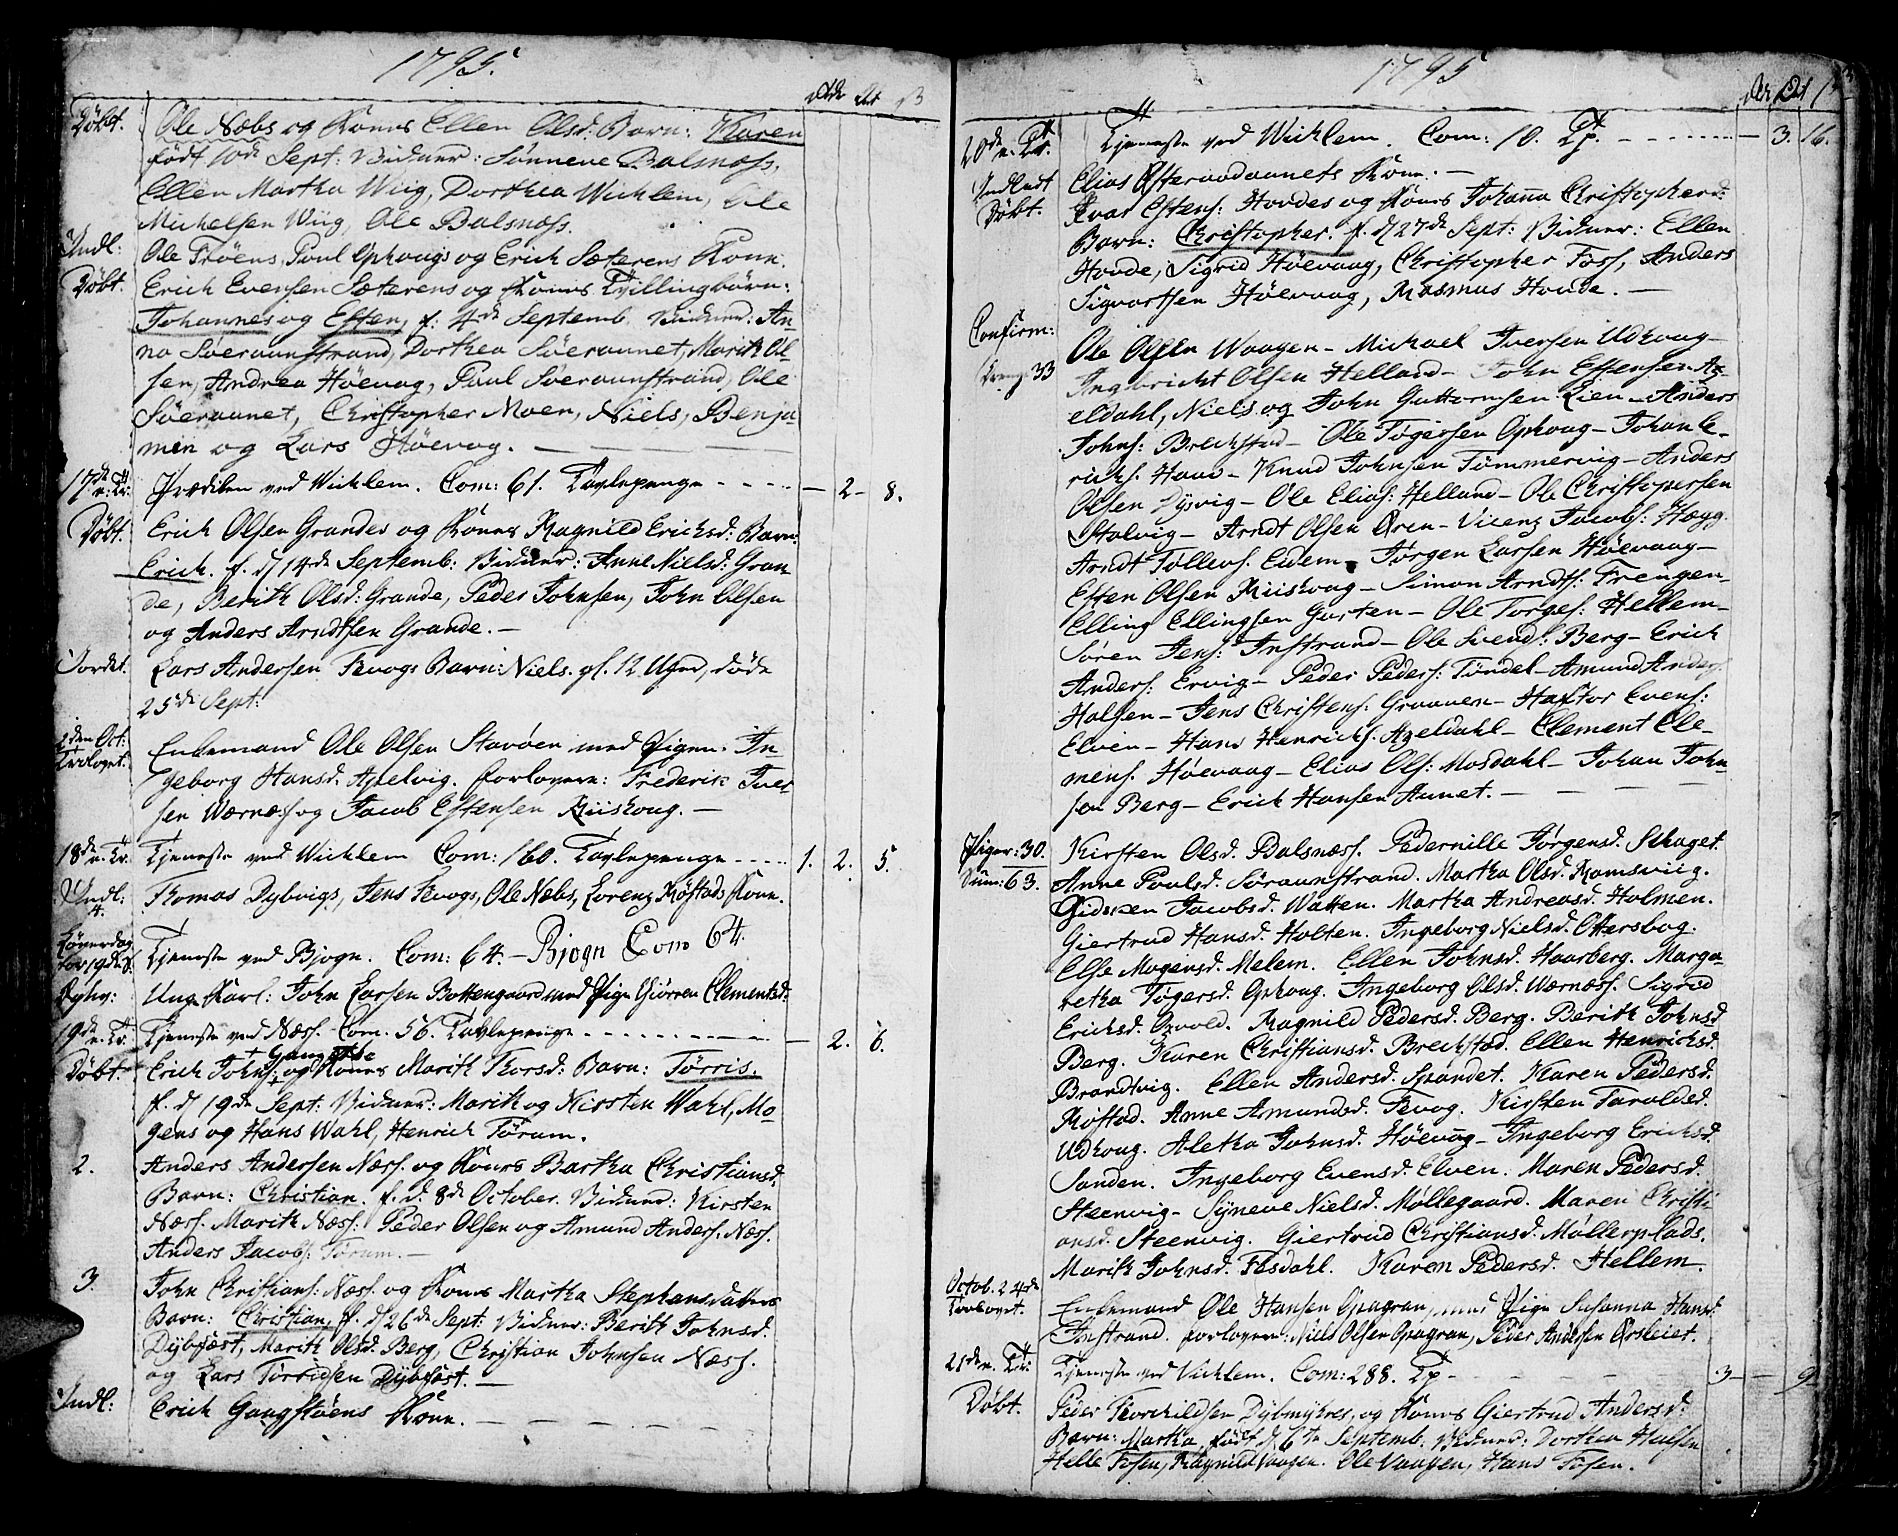 1795.
Døbt. Ole Næbs og Kones Ellen Olsd. Barn: Karen
født 10de Sept: Vidner: Sønneve Balsnæss,
Ellen Martha Wiig, Dorthea Wicklem, Ole
Michelsen Wiig, Ole Balsnæss.
Indl: Ole Frøens, Poul Ophougs og Erich Sæterens Kone.
Døbt. Erich Evensen Sæterens og Kones Tvillingbørn:
Johannes og Esten, f. 4de Septemb. Vidner: An-
na Søeraunstrand, Dorthea Søeraunet, Marith Ol-
sen, Andrea Høevog, Poul Søeraunstrand, Ole
Søeraunet, Christopher Moen, Niels, Benja-
min og Lars Høevog.
17de e. Tr. Prædiken ved Wicklem. Com: 61. Tavlepenge - - - - 2 - 8.
Døbt. Erich Olsen Grandes og Kones Ragnild Ericksd: Barn:
Erich. f. d 14de Septemb: Vidner: Anne Nielsd: Gran-
de, Berith Olsd: Grande, Peder Johnsen, John Olsen
og Anders Arndtsen Grande. -
Jordet. Lars Andersen Tevogs Barn: Niels. gl. 12 Uger, døde
25de Sept:
2den Oct: Enkemand Ole Olsen Stavøen med Pigen. In-
Trolovet. geborg Hansd. Apelvig. forlovere: Frederik Iver-
sen Wærnæss og Jacob Estensen Riiskoug. -
18de e. Tr. Tjeneste ved Wicklem Com: 160. Tavlepenge - - - - 1. 2. 5.
Indl: 4. Thomas Dybvigs, Jens Tevogs, Ole Næbs, Lorenz Røstads Kone.
Løverdag for 19de Tjeneste ved Bjogn. Com: 64. - Bjogn Com 64.
Ung Karl: John Larsen Bottengaard med Pige Giørren Clementsd:
19de e. Tr. Tjeneste ved Næss. Com. 56. Tavlepenge - - - - 2. 6.
Døbt. Erich Johns: Gangstøe og Kones Marith Thorsd: Barn: Tørris.
f. d 19de Sept: Vidner: Marith og Kirsten Wahl, Mo-
gens og Hans Wahl, Henrich Tørum.
2. Anders Andersen Næss. og Kones Bartha Christiansd.
Barn: Christian. f. d. 8de October. Vidner: Kirsten
Næss. Marith Næss. Peder Olsen og Amund Anders. Næss.
Anders Jacobs: Tørum. -
3. John Christians: Næss. og Kones Martha Stephansdatters
Barn: Christian, f. d 26de Sept: Vidner: Berith Johnsd.
Dybfæst, Marith Olsd. Berg, Christian Johnsen Næss.
og Lars Torridsen Dybfæst. -
Indl: Erich Gangstøens Kone. -
1795
20de e. Tr. Tjeneste ved Wicklem. Com: 10. Tp. - - - - 3. 16.
Indledt Elias Østeraadaunets Kone. -
Døbt. Ivar Estens: Hovdes og Kones Johanna Christophersd:
Barn: Christopher. f. d 27de Sept: Vidner: Ellen
Hovde, Sigrid Høevaag, Christopher Foss, Anders
Sigvartsen Høevaag, Rasmus Hovde. -
Confirm: Ole Olsen Waagen - Michael Iversen Udhoug -
Dreng. 33 Ingebricht Olsen Helland - John Estensen Ag-
eldahl, Niels og John Guttormsen Lien - Anders
Johns: Brechstad - Ole Tøgersen Ophoug - Johan E-
richs. Haav - Knud Johnsen Tømmervig - Anders
Olsen Dysvig - Ole Elias: Helland - Ole Christophersen
Stalvig - Arndt Olsen Øren - Vicenz Jacobs: Hægg.
Arndt Tollevs. Eidem - Jørgen Larsen Høevaag -
Esten Olsen Riiskoug - Simon Arndts: Frengen -
Elling Ellingsen Garten - Ole Torges: Hellem -
Søren Jens: Instrand - Ole Svend: Berg - Erich
Anders: Ervig - Peder Peders: Tøndel - Amund Anders:
Holsen - Jens Christens: Graaven - Haftor Evens:
Elven - Hans Henrichs. Ageldahl - Clement Cle-
mens. Høevaag - Elias Ols: Mosdahl - Johan John-
sen Berg - Erich Hansen Aunet. -
Piger: 30. Kirsten Olsd. Balsnæss. Pedernille Jørgensd. Schaget.
Sum: 63. Anne Poulsd. Søraunstrand. Martha Olsd. Ramsviig.
Gidsken Jacobsd. Watten. Martha Andreasd. Holmen.
Giertrud Hansd. Holten. Ingeborg Nielsd. Ottersbog.
Else Mogensd. Melem. Ellen Johnsd. Haarberg. Marga-
retha Tøgersd. Ophoug. Ingeborg Olsd. Wærnæss. Sigrid
Erichsd. Opvold. Ragnild Pedersd. Berg. Berith Johnsd
Berg. Karen Christiansd. Brechstad. Ellen Henrichsd.
Brandtvig. Ellen Andersd. Spandet. Karen Pedersd.
Røstad. Anne Amundsd. Tevog. Kirsten Taraldsd.
Udhoug. Aletha Johnsd. Høevog - Ingeborg Erichsd.
Sanden. Ingeborg Evensd. Elven. Maren Pedersd.
Steenvig - Syneve Nielsd. Møllegaard. Maren Christi-
ansd. Steenvig. Giertrud Christiansd. Møllerplads.
Marith Johnsd. Fosdahl. Karen Pedersd. Hellem.
Octob. 24de Enkemand Ole Hansen Opagran, med Pige Susanna Hansd.
Trolovet. Instrand. forlovere: Niels Olsen Opagran, Peder Andersen Ørsleiet.
21de e. Tr: Tjeneste ved Vicklem. Com: 288. Tp - - - 3 - 9
Døbt. Peder Thorchildsen Dybmyhres, og Kones Giertrud Andersd:
Barn: Martha, født d 6te Septemb. Vidner: Dorthea
Helle Fosen, Ragnild Vaagen. Ole Vaagen, Hans Fosen.